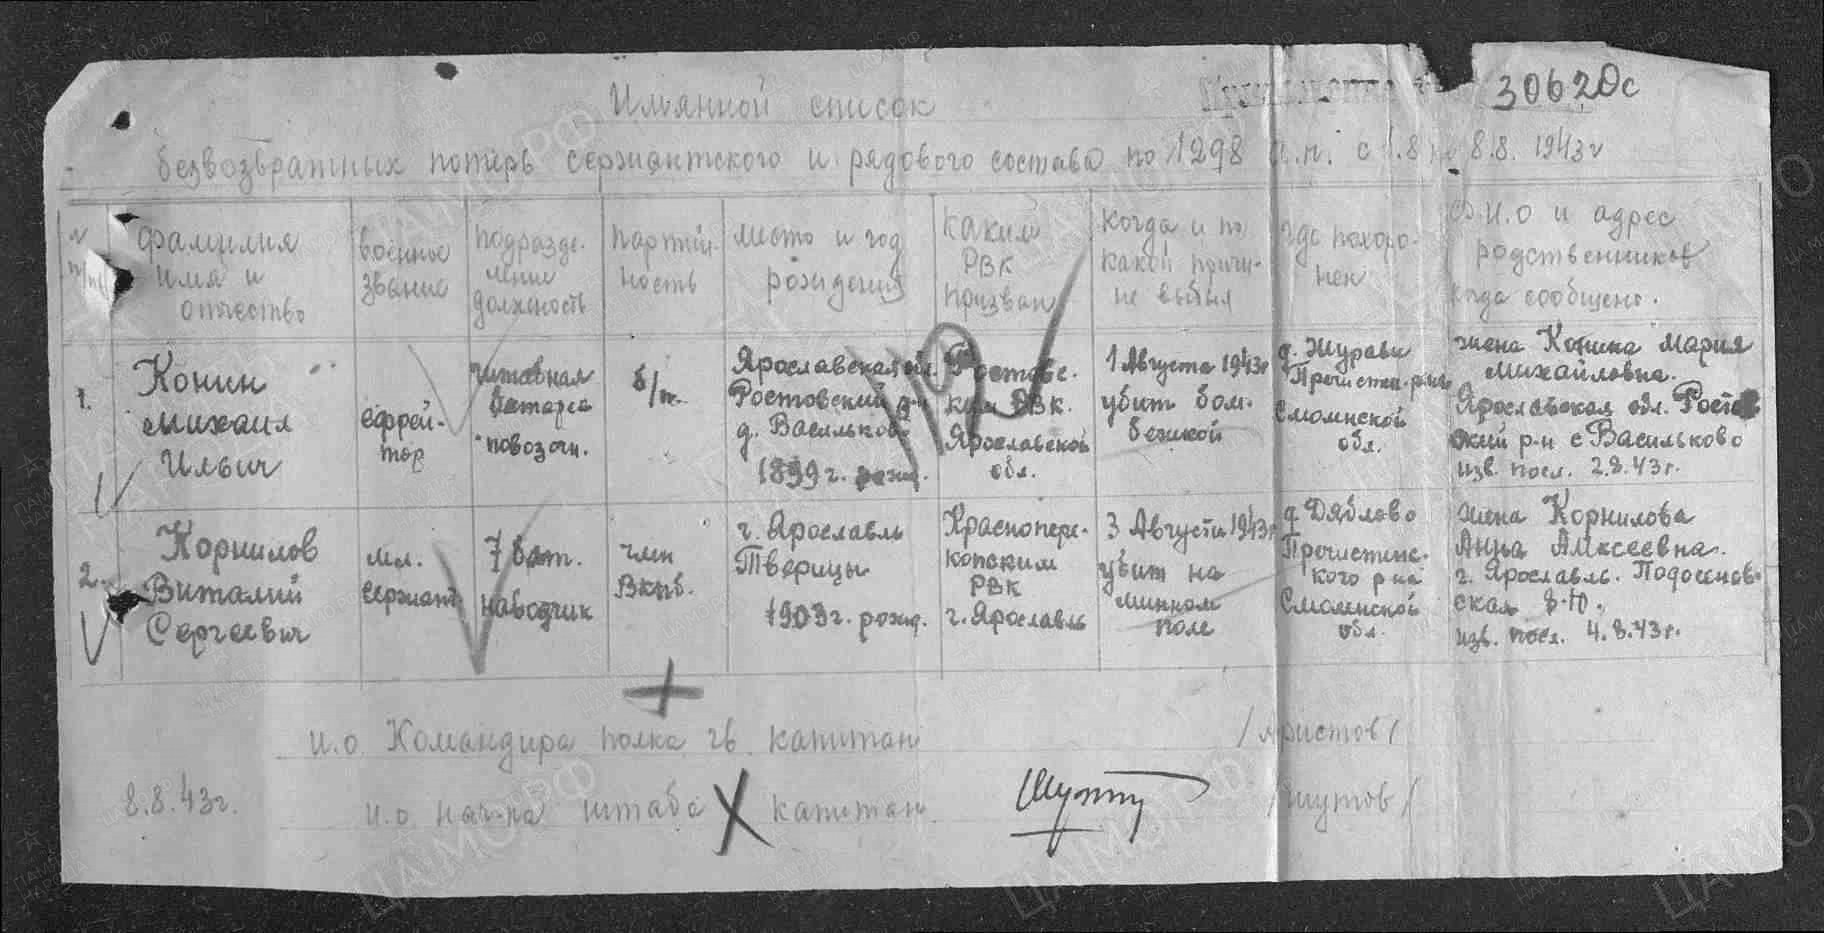 30620с
Имянной список
безвозвратных потерь сержантского и рядового состава по 1298 п.п. с 1.8 по 8.8. 1943 г
№ п/п
фамилия имя и отчество
военное звание
подразделение должность
партийность
место и год рождения
каким РВК призван
когда и по какой причине выбыл
где похоронен
Ф.И.О и адрес родственников
куда сообщено.
1.
Конин
Михаил
Ильич
ефрей-
тор
батарея
повозочн.
б/п.
Ярославская обл.
Ростовский р-н
д. Васильково
1899 г. рожд.
Ростовс-
ким РВК.
Ярославской
обл.
1 Августа 1943г
убит бом-
бежкой
д. Журавы
Пречистен. р-на
Смоленской
обл.
жена Конина Мария
Михайловна.
Ярославская обл. Ростов
ский р-н с Васильково
изв. посл. 2.8.43г.
2.
Корнилов
Виталий
Сергеевич
мл.
сержант
7 бат.
наводчик
член
ВКПб.
г. Ярославль
Тверицы
1903г. рожд.
Краснопере-
копским
РВК
г. Ярославль
3 Августа 1943г
убит на
минном
поле
д Дяблово
Пречистенс-
кого р на
Смоленской
обл.
жена Корнилова
Анна Алексеевна.
г. Ярославль. Подосенов-
ская
изв. посл. 4.8.43г.
и.о. Командира полка гв. капитан /Аристов/
8.8.43г. и.о нач-ка штаба капитан /Шутов/